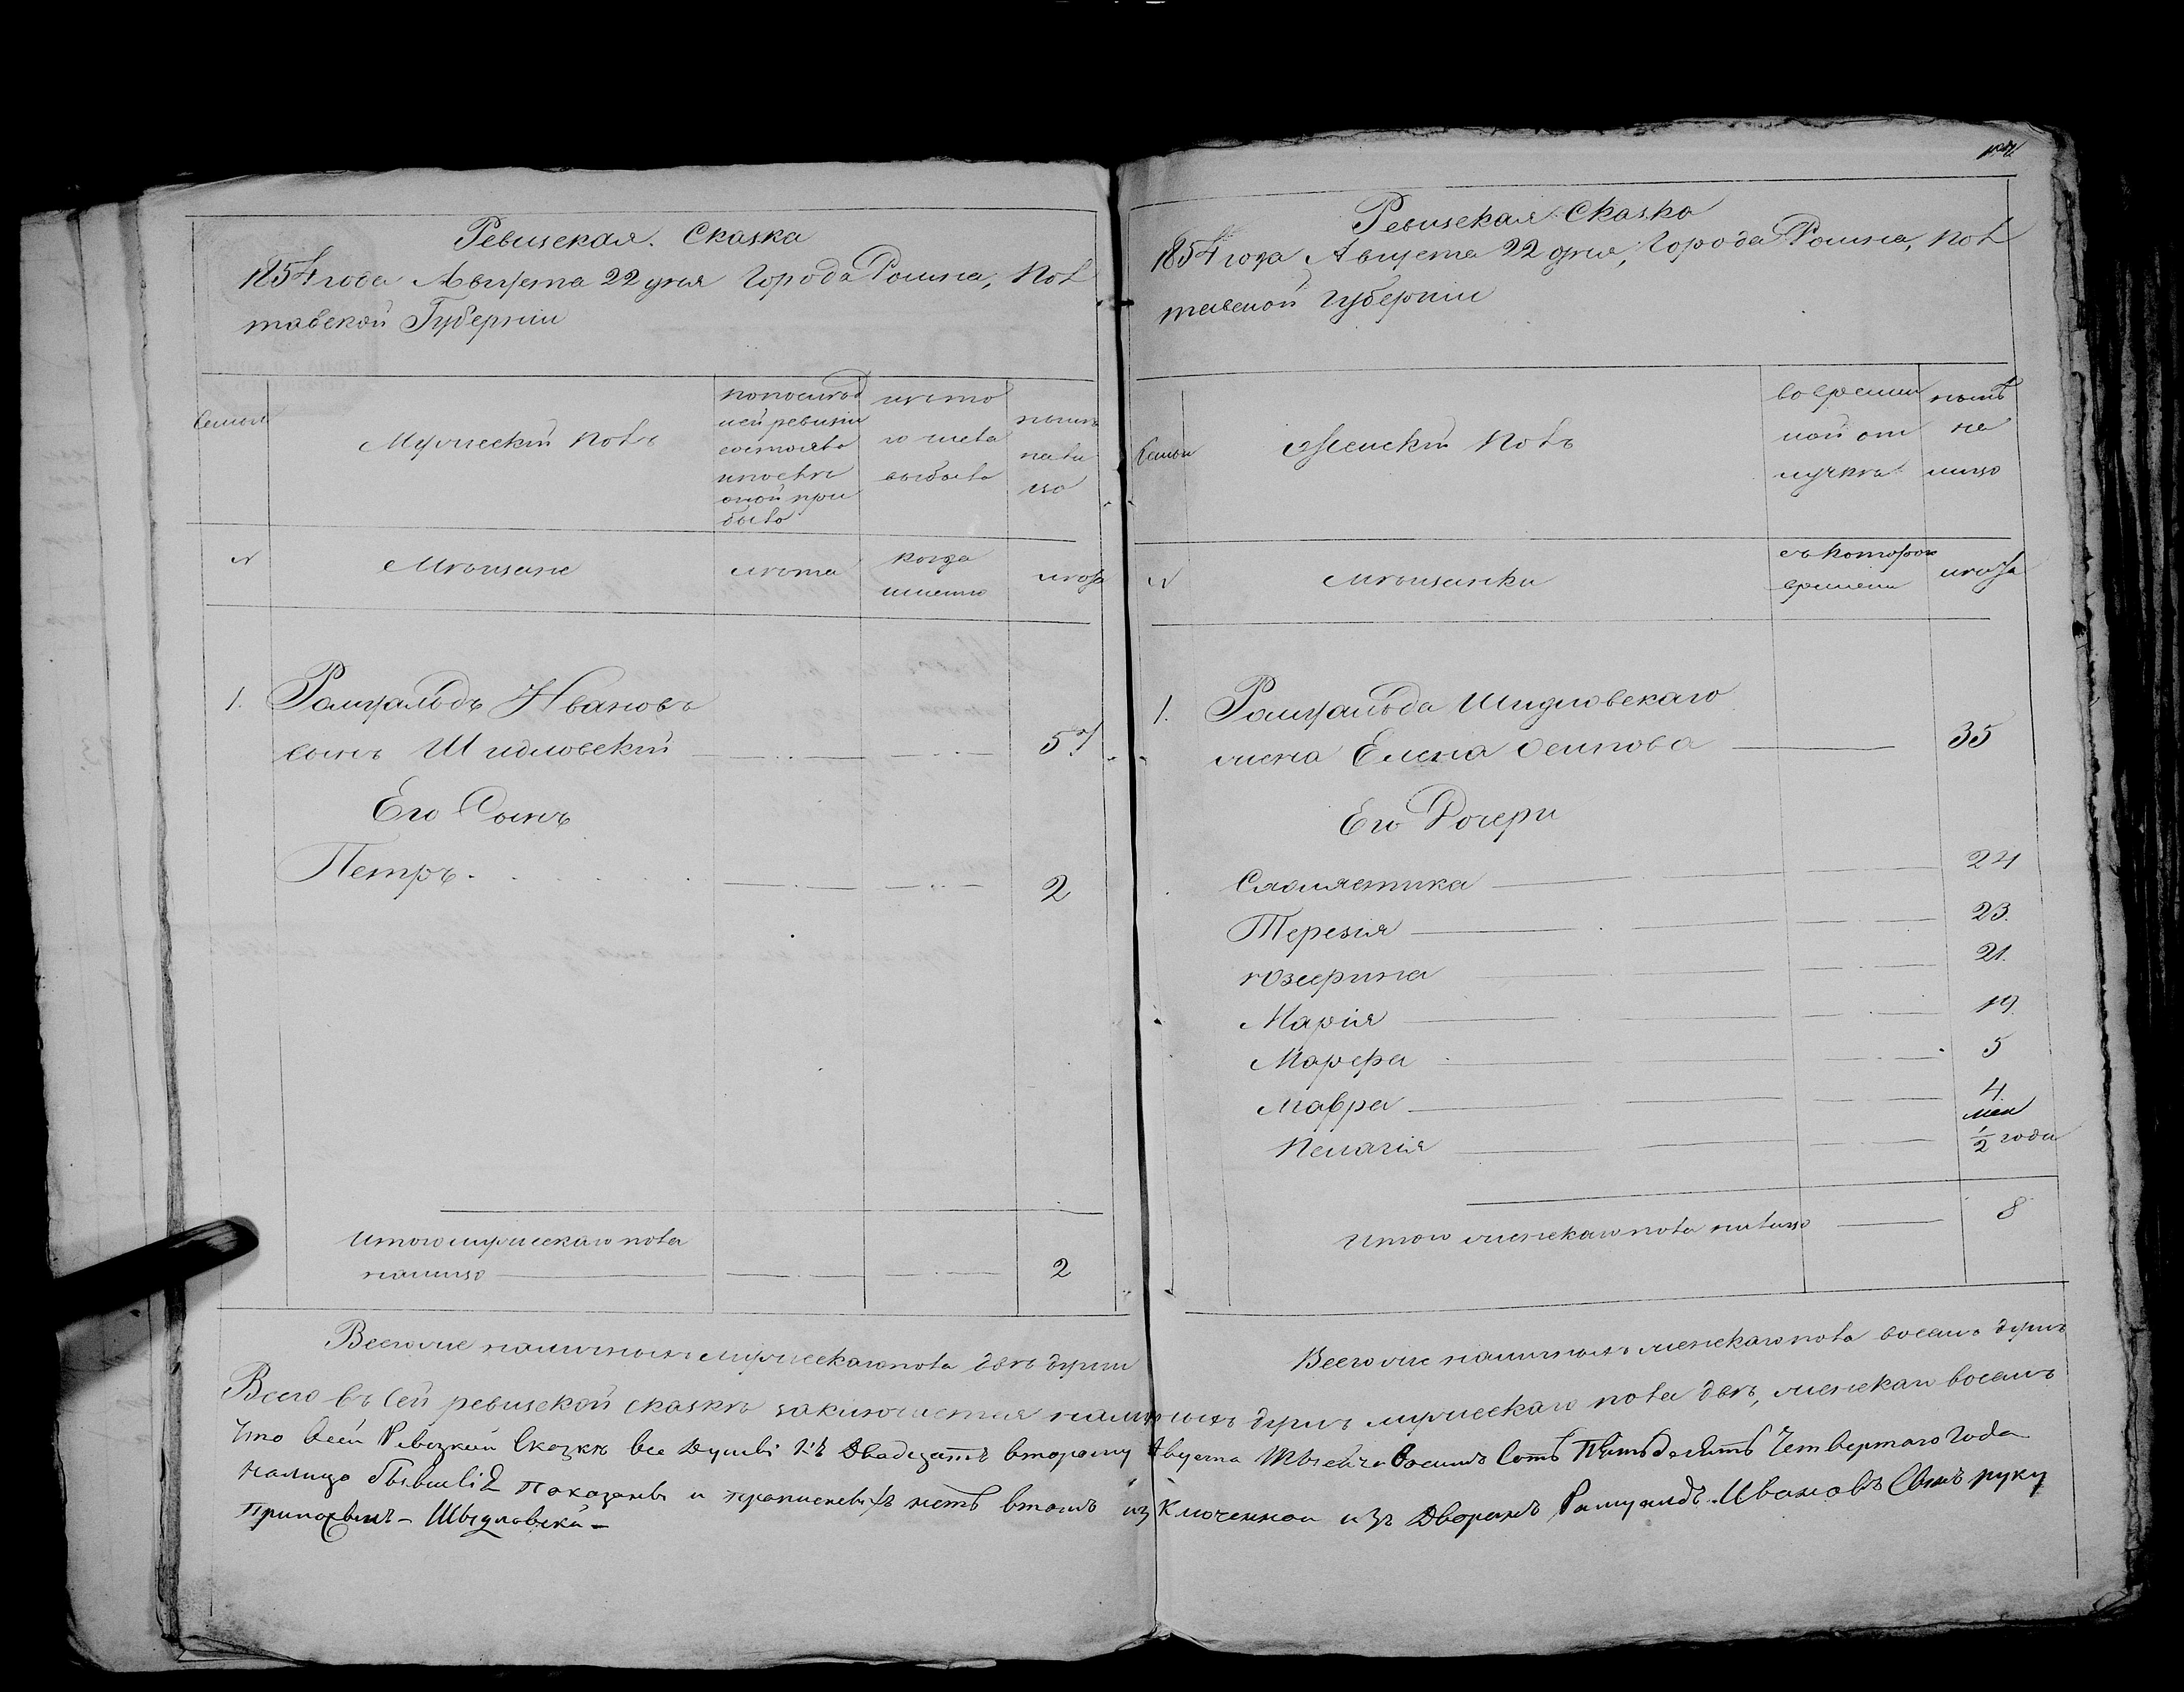 Ревизская Сказка
1854 года Августа 22 дня Города Ромна, Пол
тавской Губернiи
Семьи
Мужескiй полъ
по послѣд
ней ревизiи
состояло
и послѣ
оной при
было
изъ то
го числа
выбыло
нынѣ
на ли
цо
№
Мѣщане
лѣта
когда
именно
лѣта
1. Ромуальдъ Ивановъ
сынъ Шидловскiй 57
Его Сынъ
Петръ 2
Итого мужескаго пола
налицо 2
Всего же наличныхъ мужескаго пола двѣ души
Ревизская Сказка
1854 года Августа 22 дня, Города Ромна, Пол
тавской Губернiи
Семьи
Женскiй полъ
во времен
ной от
лучкѣ
нынѣ
на
лицо
№
Мѣщанки
съ котораго
времени
лѣта
1. Ромуальда Шидловскаго
жена Елена Осипова 35
Его Дочери
Схолястика 24
Терезiя 23.
Юзефина 21.
Марiя 19
Марфа 5
Мавра 4.
Пелагiя ½ года
Итого женскаго пола налицо 8
Всего же наличныхъ женскаго пола восемь душъ
Всего въ сей ревизской сказкѣ заключается наличныхъ душъ мужескаго пола двѣ, женскаго восемь
Что всей Ревизкой Сказкѣ все Души къ Двадцать второму Августа Тысеча Восимъ Сотъ Пятьдесятъ Четвертаго Года
налицо бывшiе показаны и прописныхъ нетъ втомъ изключенной изъ Дворянъ Ромуалдъ Ивановъ Сынъ руку
приложилъ – Шыдловскiй –